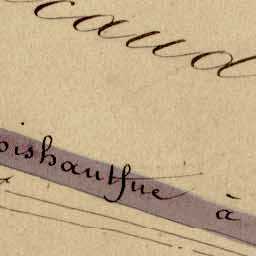 caud
oishautfue à